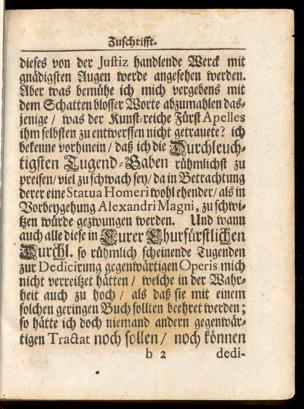 Zuschrifft.
dieses von der Justiz handlende Werck mit
gnädigsten Augen werde angesehen werden.
Aber was bemühe ich mich vergebens mit
dem Schatten blosser Worte abzumahlen das-
jenige / was der Kunst-reiche Fürst Apelles
ihm selbsten zu entwerffen nicht getrauete? ich
bekenne vorhinein / daß ich die Durchleuch-
tigsten Tugend-Gaben rühmlichst zu
preisen / viel zu schwach sey / da in Betrachtung
derer eine Statua Homeri wohl ehender / als in
Vorbeygehung Alexandri Magni, zu schwi-
tzen würde gezwungen werden. Und wann
auch alle diese in Eurer Churfürstlichen
Durchl. so rühmlich scheinende Tugenden
zur Dedicirung gegenwärtigen Operis mich
nicht verreitzet hätten / welche in der Wahr-
heit auch zu hoch / als daß sie mit einem
solchen geringen Buch sollten beehret werden;
so hätte ich doch niemand andern gegenwär-
tigen Tractat noch sollen / noch können
b 2 dedi-